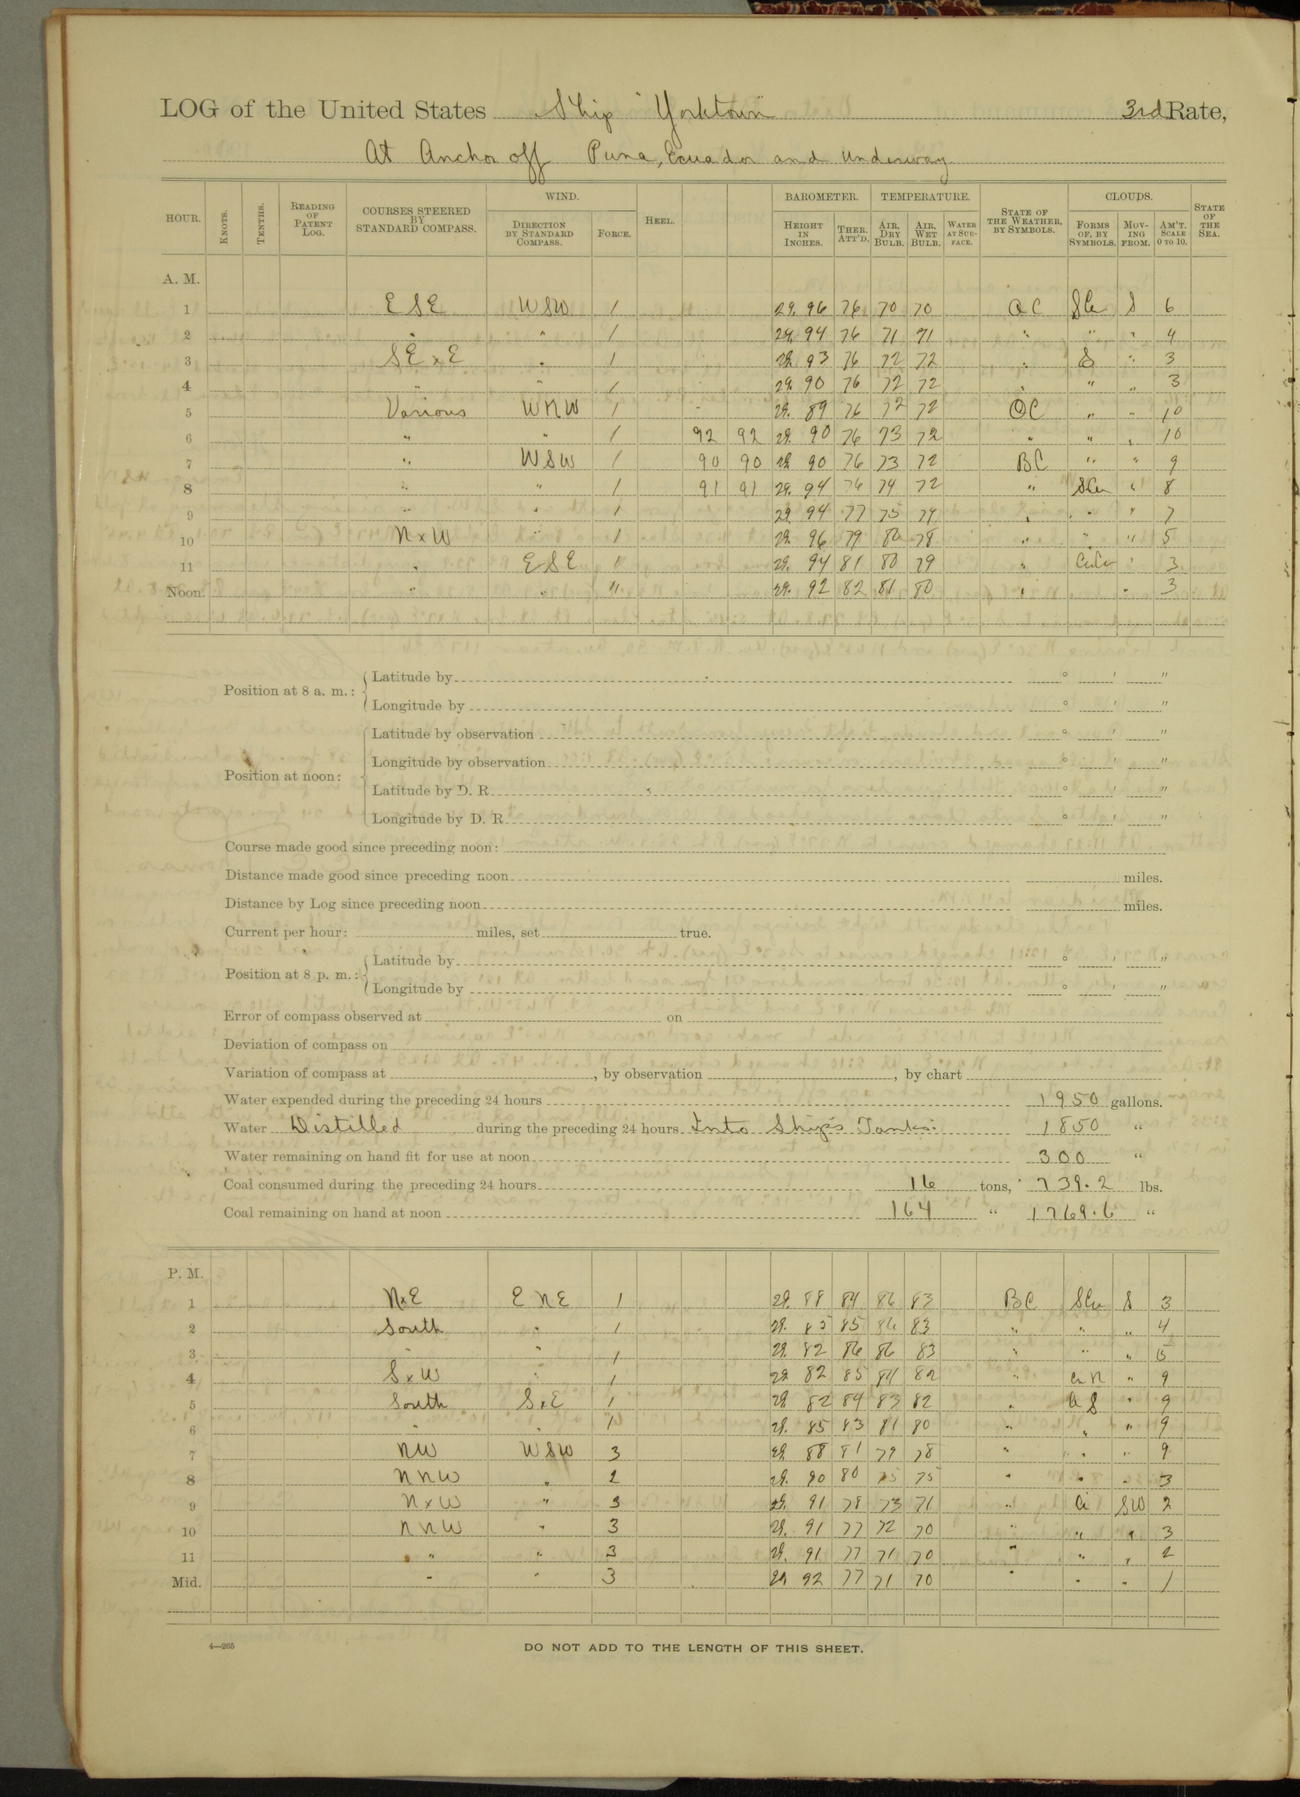 LOG of the United States Ship "Yorktown" 3rd Rate,
At Anchor off Puna, Ecuador and underway
HOUR. KNOTS. TENTHS. READING OF PATENT LOG. COURSES STEERED BY STANDARD COMPASS. WIND. DIRECTION BY STANDARD COMPASS. FORCE. HEEL. BAROMETER. HEIGHT IN INCHES. THER. ATT'D. TEMPERATURE. AIR, DRY BULB. AIR, WET BULB. WATER AT SURFACE. STATE OF THE WEATHER, BY SYMBOLS. CLOUDS. FORMS OF, BY SYMBOLS. MOVING FROM. AM'T. SCALE 0 TO 10. STATE OF THE SEA.
A. M.
1 ESE WSW 1 29. 96 76 70 70 OC SCu S 6
2 " " 1 29. 94 76 71 71 " " " 4
3 SExE " 1 29. 93 76 72 72 " S " 3
4 " " 1 29. 90 76 72 72 " " " 3
5 Various WNW 1 29. 89 76 72 72 OC " " 10
6 " " 1 92 92 29. 90 76 73 72 " " " 10
7 " WSW 1 90 90 29. 90 76 73 72 BC " " 9
8 " " 1 91 91 29. 94 76 74 72 " SCu " 8
9 " " 1 29. 94 77 75 74 " " " 7
10 NxW " 1 29. 96 79 80 78 " " " 5
11 " ESE " 29. 94 81 80 79 " CiCu " 3
Noon. " " " 29. 92 82 81 80 " " 3
Position at 8 a. m.: Latitude by ° ' "
Longitude by ° ' "
Latitude by observation ° ' "
Longitude by observation ° ' "
Position at noon:
Latitude by D. R ° ' "
Longitude by D. R ° ' "
Course made good since preceding noon:
Distance made good since preceding noon miles.
Distance by Log since preceding noon miles.
Current per hour: miles, set true.
Position at 8 p. m.: Latitude by ° ' "
Longitude by ° ' "
Error of compass observed at on
Deviation of compass on
Variation of compass at , by observation , by chart
Water expended during the preceding 24 hours 1950 gallons.
Water Distilled during the preceding 24 hours Into Ship's Tanks: 1850 "
Water remaining on hand fit for use at noon 300 "
Coal consumed during the preceding 24 hours 16 tons, 739.2 lbs.
Coal remaining on hand at noon 164 " 1769.6 "
P. M.
1 NxE ENE 1 29. 88 84 86 83 BC SCu S 3
2 South " 1 29. 85 85 86 83 " " " 4
3 " " 1 29. 82 86 86 83 " " " 5
4 SxW " 1 29. 82 85 84 82 " CiN " 9
5 South SxE 1 29. 82 84 83 82 " CiS " 9
6 " " 1 29. 85 83 81 80 " " " 9
7 NW WSW 3 29. 88 81 79 78 " " " 9
8 NNW " 2 29. 90 80 75 75 " " " 3
9 NxW " 3 29. 91 78 73 71 " Ci SW 2
10 NNW " 3 29. 91 77 72 70 " " " 3
11 " " 3 29. 91 77 71 70 " " " 2
Mid. " " 3 29. 92 77 71 70 " " " 1
4—265 DO NOT ADD TO THE LENGTH OF THIS SHEET.